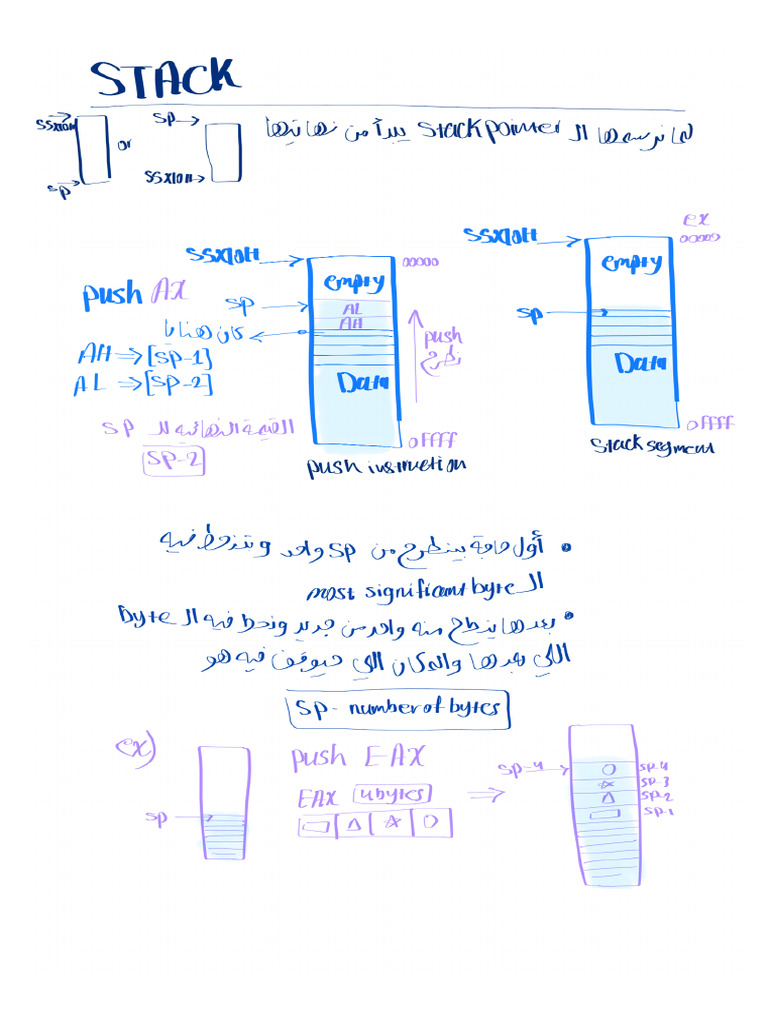 STACK
SSX10H
or
SP
SP
SSX10H
لما نرسمها ال Stack pointer يبدأ من نهايتها
push AX
AH ⇒ [SP-1]
AL ⇒ [SP-2]
القيمة النهائية لل SP
SP-2
SSX10H
00000
empty
SP
AL
AH
كان هنا
push
نطرح
Data
0ffff
push instruction
ex
SSX10H
00000
empty
SP
Data
0ffff
Stack segment
• أول حاجة بينطرح من SP واحد و نحط فيه
ال most significant byte
• بعدها ينطرح منه واحد من جديد ونحط فيه ال Byte
اللي بعدها والمكان اللي حيوقف فيه هو
SP - number of bytes
ex)
SP
push EAX
EAX 4bytes
⇒
SP-4
SP-4
SP-3
SP-2
SP-1